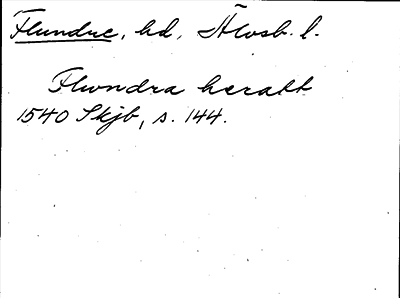 Flundre, hd, Älvsb. l.
Flwndra heratt
1540 Skjb, s. 144.